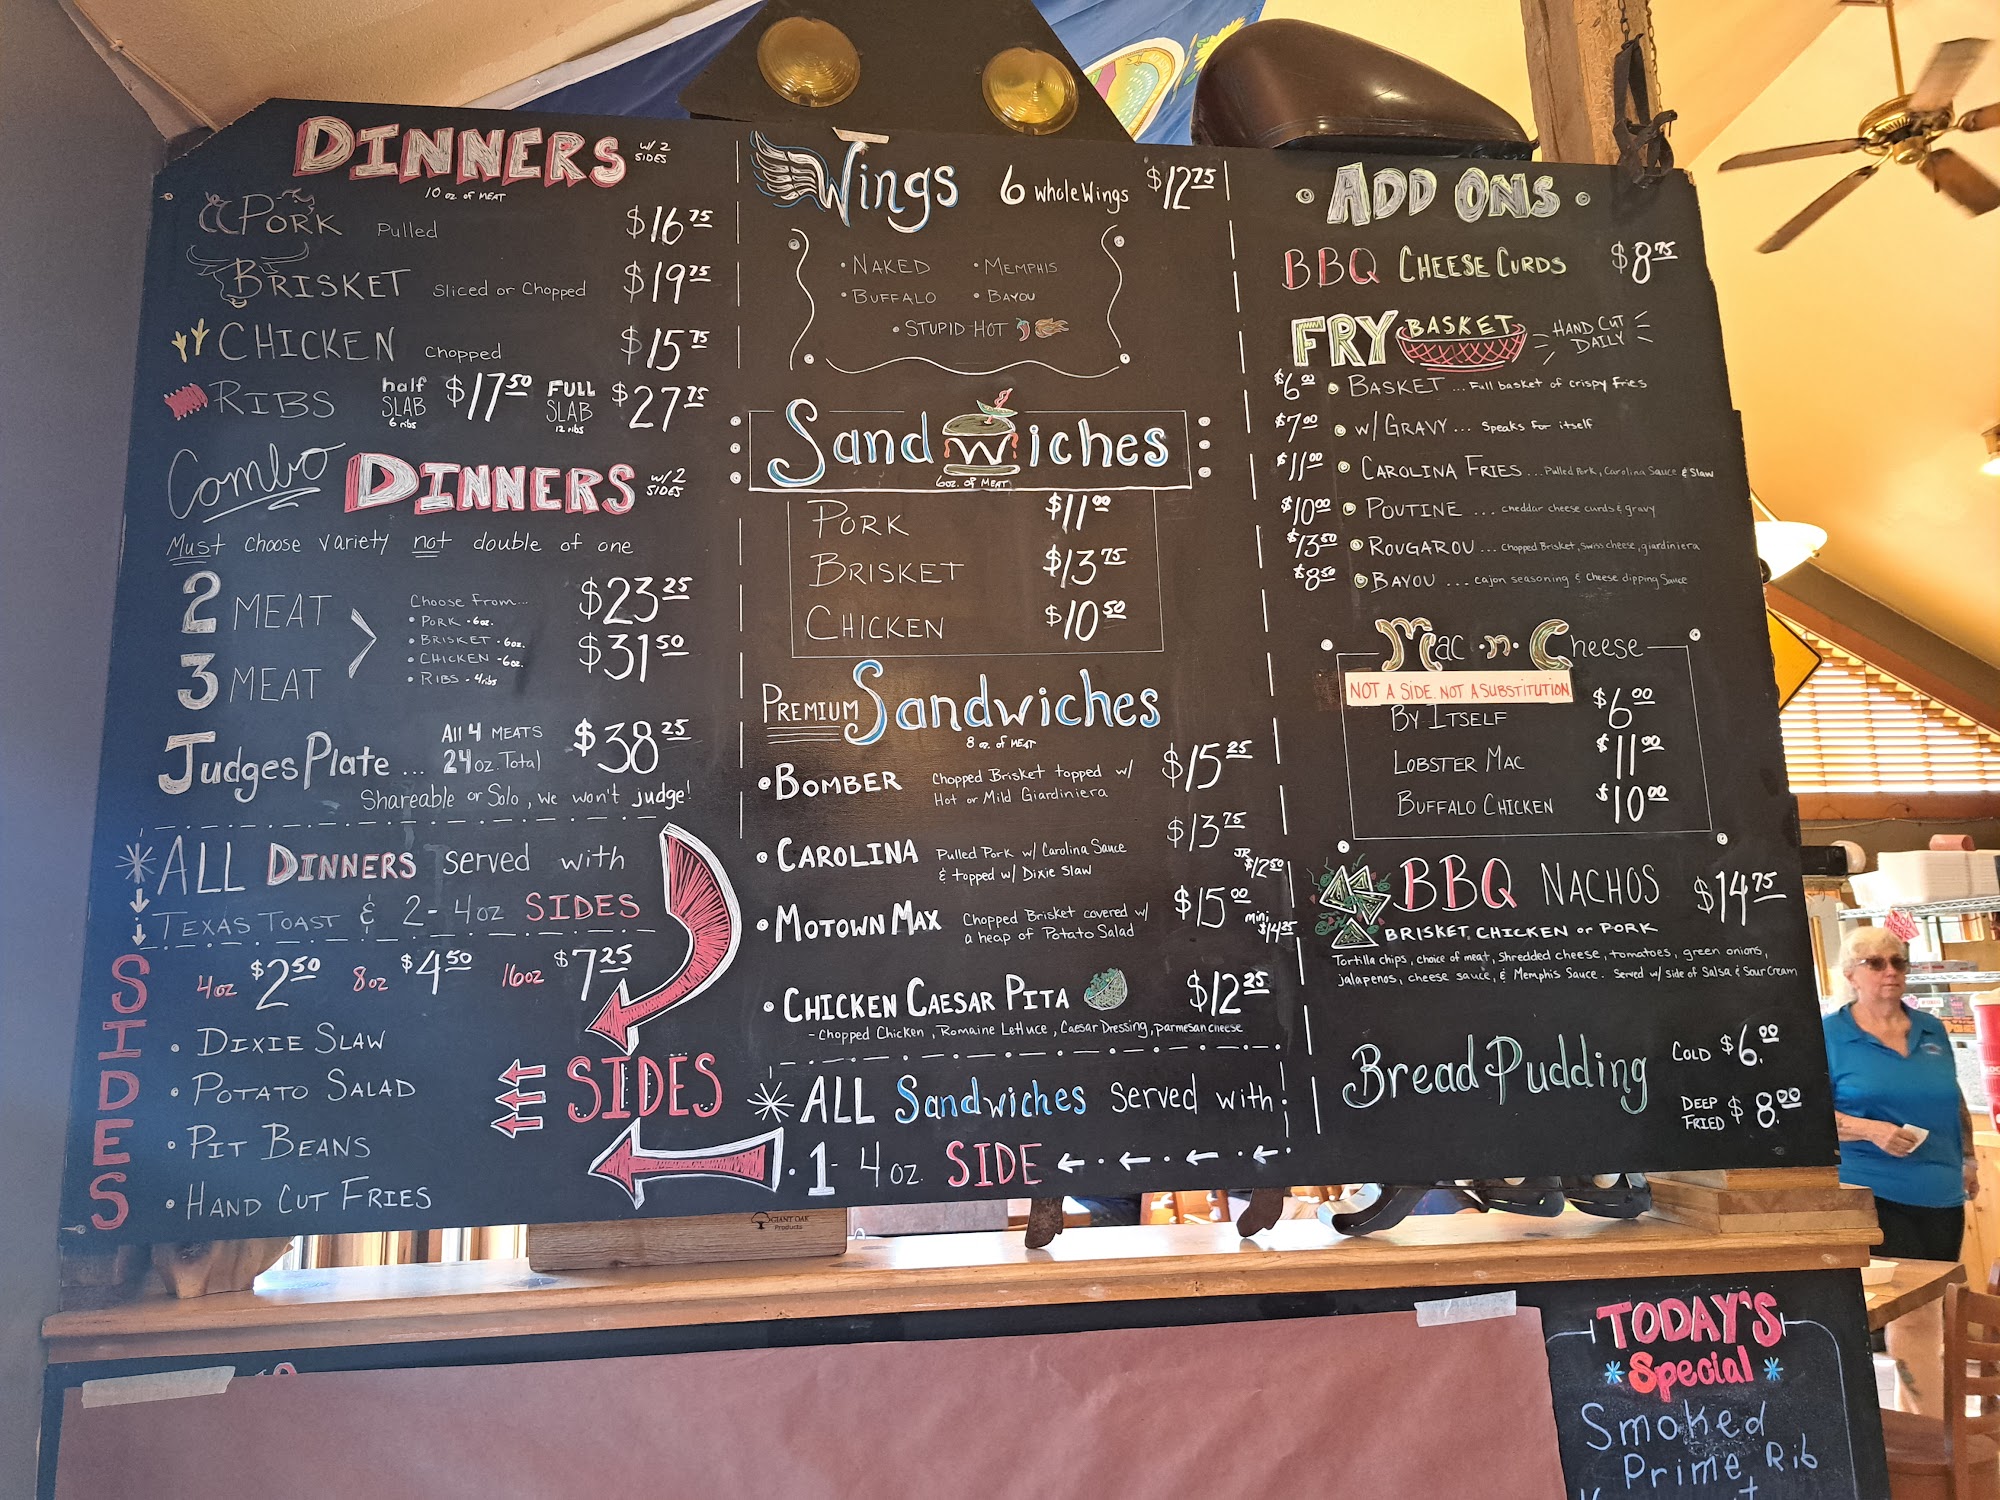 DINNERS w/ 2 SIDES
10 oz of MEAT
PORK Pulled $16.75
BRISKET Sliced or Chopped $19.75
CHICKEN Chopped $15.75
RIBS half SLAB 6 ribs $17.50 FULL SLAB 12 ribs $27.75
Combo DINNERS w/2 SIDES
Must choose variety not double of one
2 MEAT $23.25
3 MEAT $31.50
Choose from...
• PORK - 6oz.
• BRISKET - 6oz.
• CHICKEN - 6oz.
• RIBS - 4ribs
Judges Plate ... All 4 MEATS 24oz. Total $38.25
Shareable or Solo, we won't judge!
ALL DINNERS served with
TEXAS TOAST & 2 - 4oz SIDES
SIDES
4oz $2.50 8oz $4.50 16oz $7.25
• DIXIE SLAW
• POTATO SALAD
• PIT BEANS
• HAND CUT FRIES
SIDES
Wings 6 whole Wings $12.75
• NAKED • MEMPHIS
• BUFFALO • BAYOU
• STUPID HOT
Sandwiches
6oz. of MEAT
PORK $11.00
BRISKET $13.75
CHICKEN $10.50
PREMIUM Sandwiches
8 oz. of MEAT
• BOMBER Chopped Brisket topped w/ Hot or Mild Giardiniera $15.25
• CAROLINA Pulled Pork w/ Carolina Sauce & topped w/ Dixie Slaw $13.75
JR $12.50
• MOTOWN MAX Chopped Brisket covered w/ a heap of Potato Salad $15.00
mini $14.25
• CHICKEN CAESAR PITA $12.25
- Chopped Chicken, Romaine Lettuce, Caesar Dressing, parmesan cheese
ALL Sandwiches Served with:
• 1 - 4oz. SIDE
• ADD ONS •
BBQ CHEESE CURDS $8.75
FRY BASKET HAND CUT DAILY
$6.00 • BASKET ... Full basket of crispy fries
$7.00 • w/ GRAVY ... Speaks for itself
$11.00 • CAROLINA FRIES ... Pulled Pork, Carolina Sauce & Slaw
$10.00 • POUTINE ... cheddar cheese curds & gravy
$13.50 • ROUGAROU ... Chopped Brisket, swiss cheese, giardiniera
$8.50 • BAYOU ... cajon seasoning & cheese dipping sauce
Mac • n • Cheese
NOT A SIDE. NOT A SUBSTITUTION
BY ITSELF $6.00
LOBSTER MAC $11.00
BUFFALO CHICKEN $10.00
BBQ NACHOS $14.75
BRISKET, CHICKEN or PORK
Tortilla chips, choice of meat, Shredded cheese, tomatoes, green onions,
jalapenos, cheese sauce, & Memphis Sauce. Served w/ side of Salsa & Sour Cream
Bread Pudding COLD $6.00
DEEP FRIED $8.00
GIANT OAK
Products
TODAY'S
* Special *
Smoked
Prime Rib